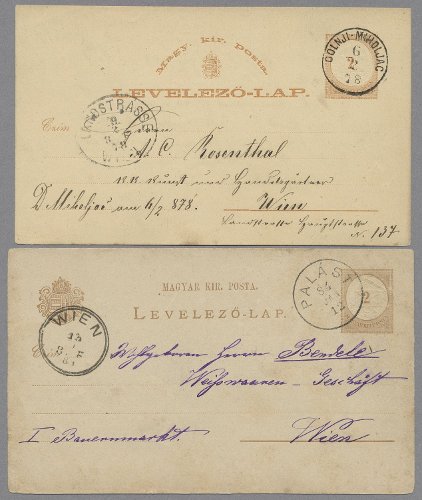 Magy. kir. posta.
LEVELEZŐ-LAP.
DOLNJI-MIHOLJAC
6
2
78
Czim
A. C. Rosenthal
k.k. Kunst und Handelsgärtner
D. Miholjac am 6/2 878. Wien
Landstrasse Hauptstrasse
N. 137
MAGYAR KIR. POSTA.
LEVELEZŐ-LAP.
PALÁST
2
WIEN
Wohlgeboren Herrn Bendele
Weisswaaren-Geschäft
I Bauernmarkt. Wien